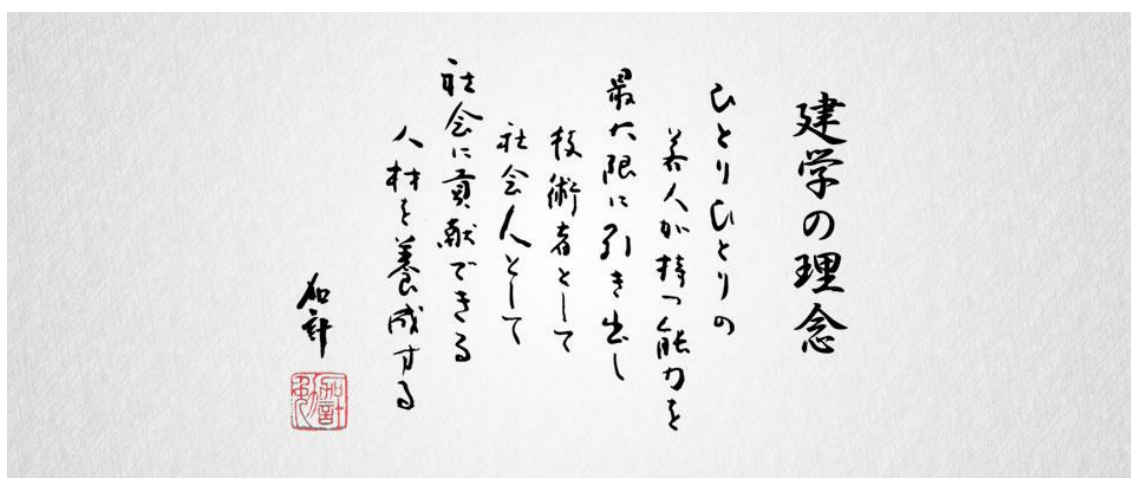 建学の理念
ひとりひとりの
若人が持つ能力を
最大限に引き出し
技術者として
社会人として
社会に貢献できる
人材を養成する
加計
加計
勉